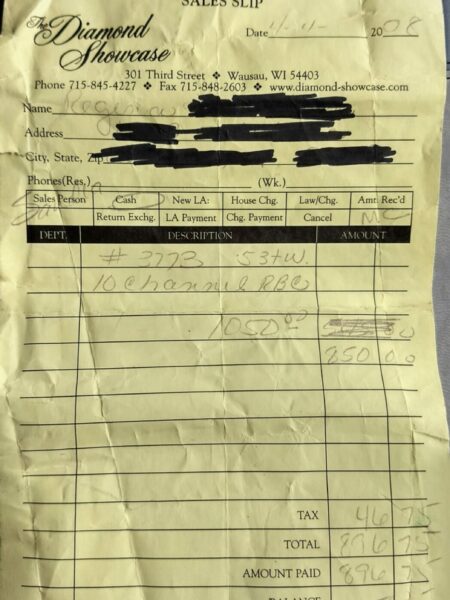 SALES SLIP
The Diamond Showcase
Date 4-11- 2008
301 Third Street ❖ Wausau, WI 54403
Phone 715-845-4227 ❖ Fax 715-848-2603 ❖ www.diamond-showcase.com
Name
Address
City, State, Zip
Phones(Res.) (Wk.)
Sales Person Cash New LA: House Chg. Law/Chg. Amt. Rec'd
Return Exchg. LA Payment Chg. Payment Cancel MC
DEPT. DESCRIPTION AMOUNT
# 3773 .53tw.
10 Channel RBC
1050.00 00
850 00
TAX 46 75
TOTAL 896 75
AMOUNT PAID 896 75
BALANCE